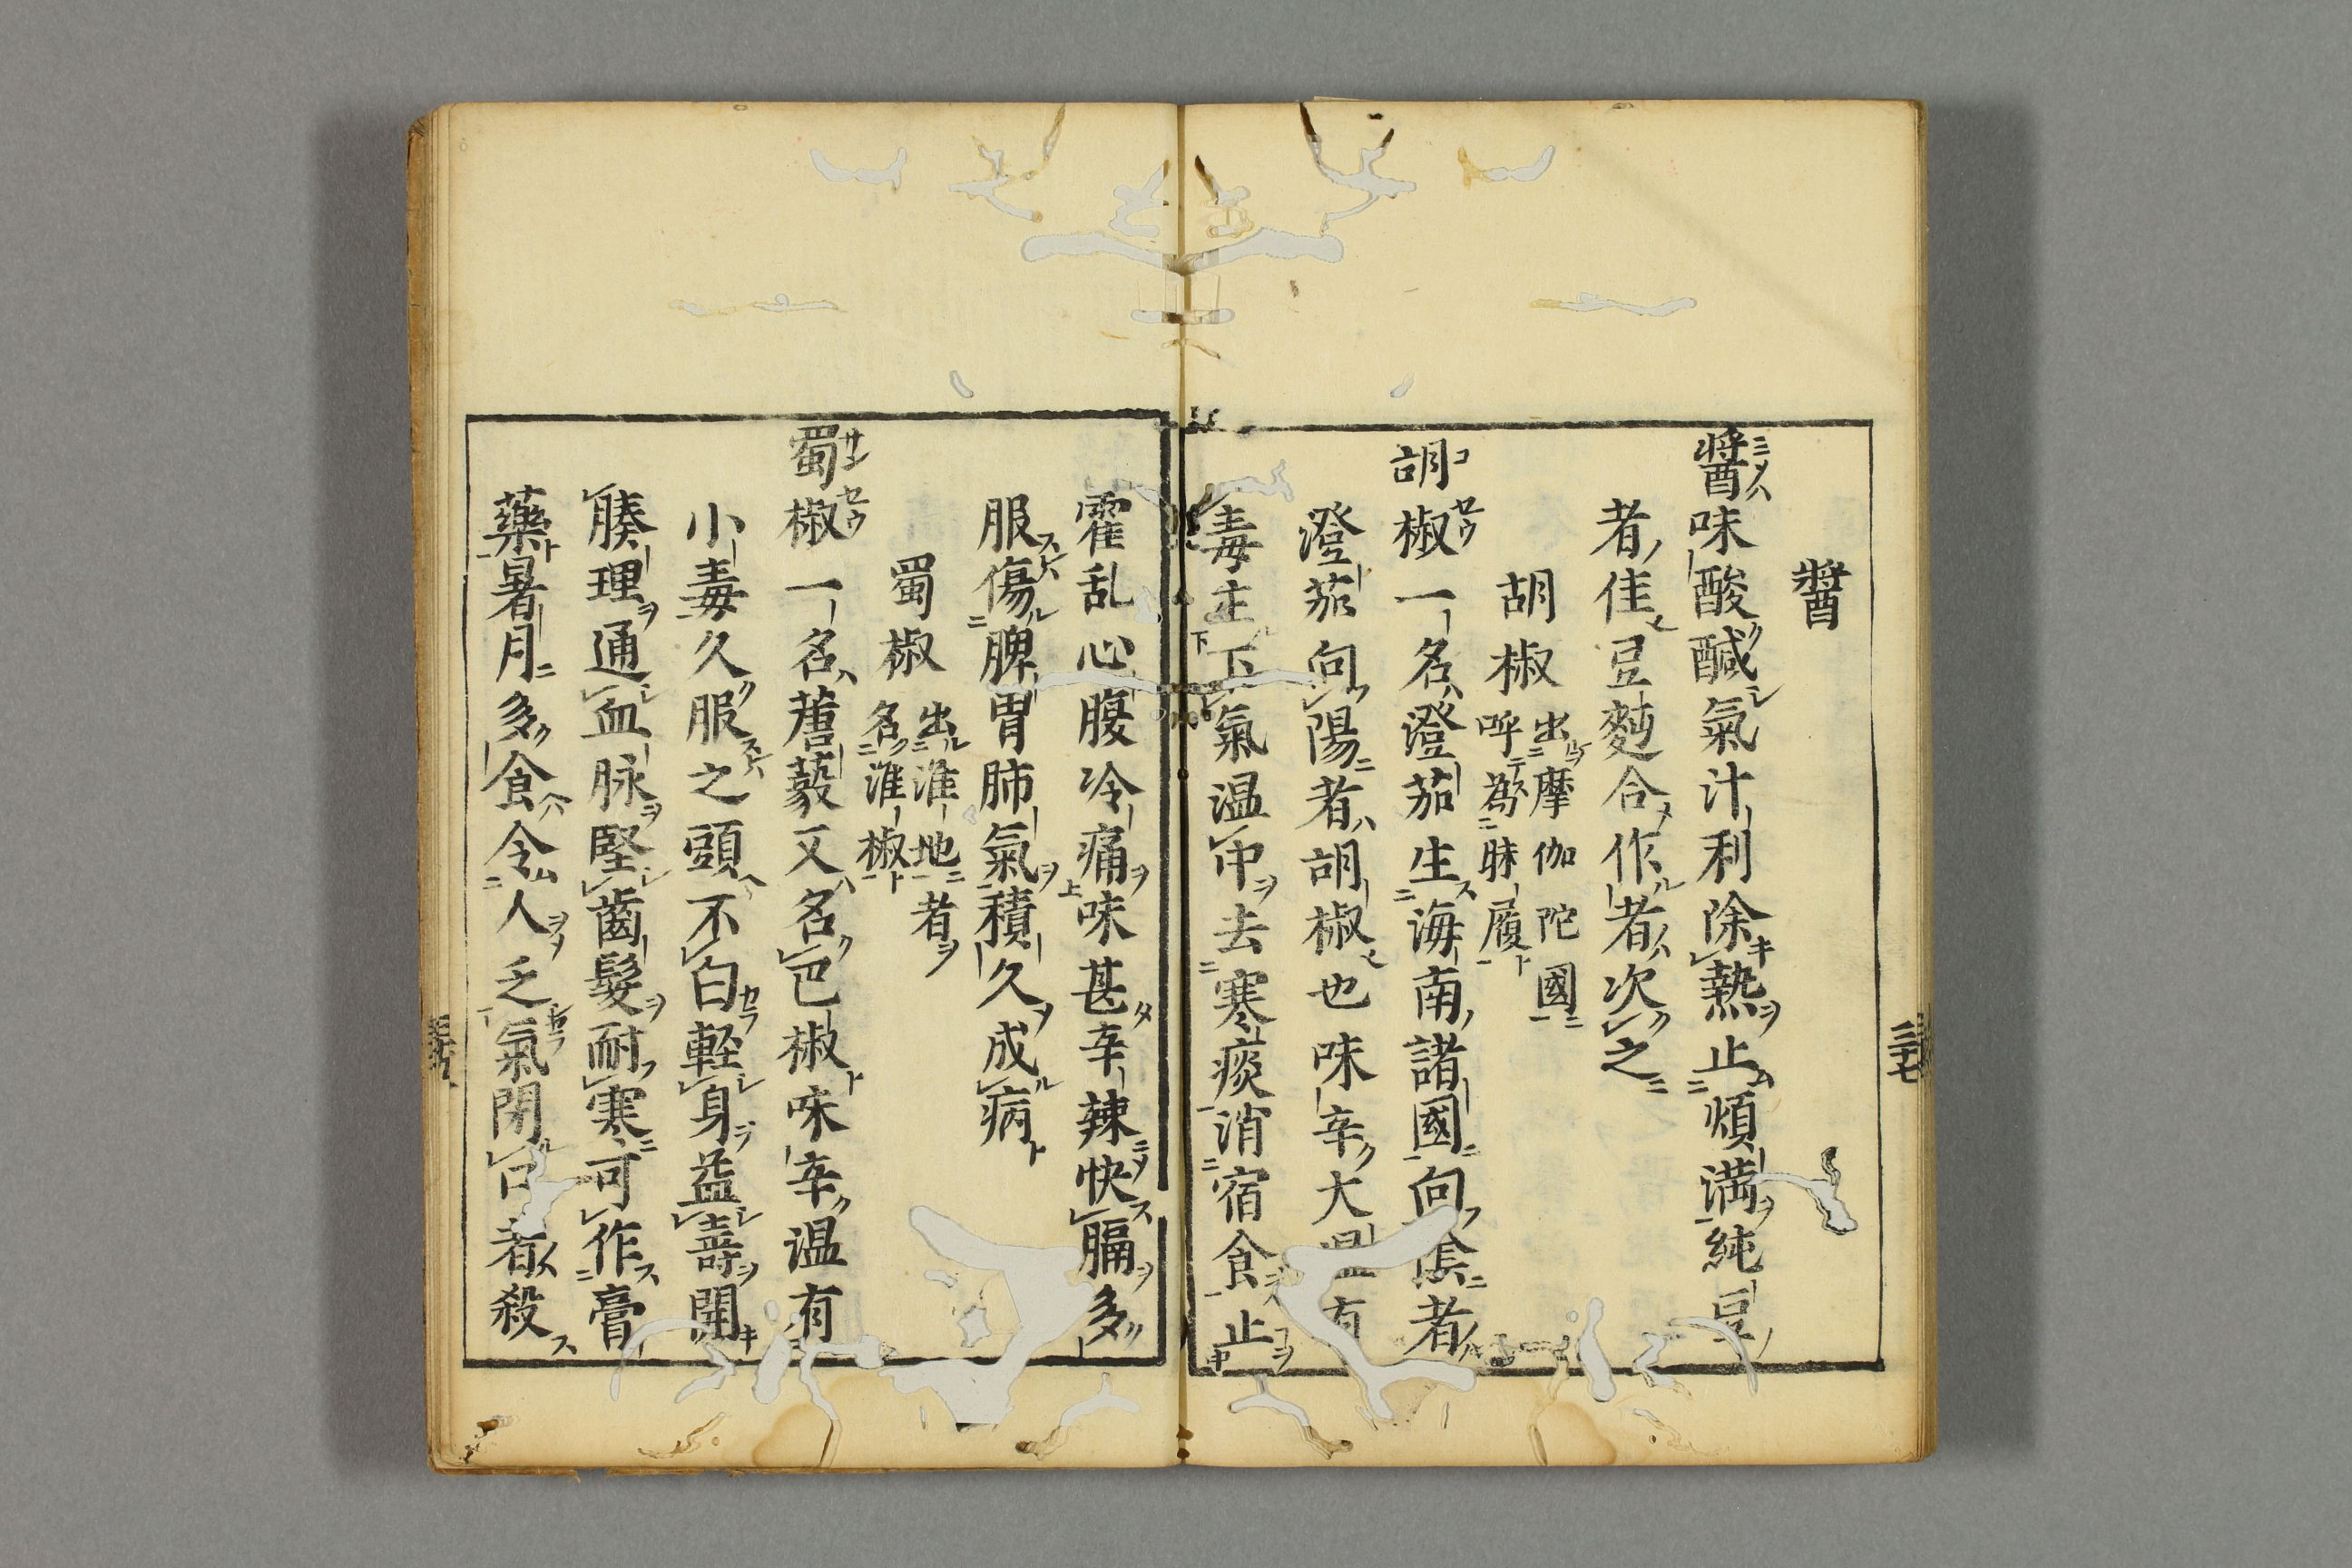 醬
醬味酸醎氣汁利除熱止煩満純豆
者佳豆麹合作者次之
胡椒 出摩伽陀國
呼為昧履
胡椒一名澄茄生海南諸國向陰者
澄茄向陽者胡椒也味辛大温有
毒主下氣温中去寒痰消宿食止
霍乱心腹冷痛味甚辛辣快膈多
服傷脾胃肺氣積久成病
蜀椒 出淮地者
名淮椒
蜀椒一名蓎藙又名巴椒味辛温有
小毒久服之頭不白軽身益壽開
腠理通血脉堅齒髮耐寒可作膏
藥暑月多食令人乏氣閉口者殺
三十七